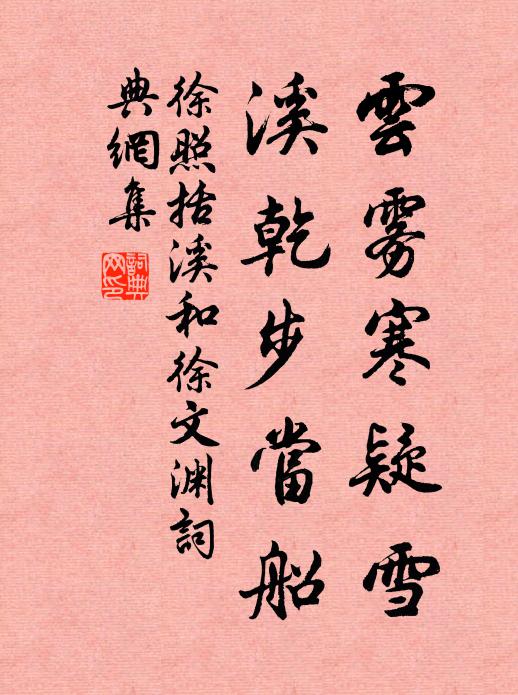 雲雾寒疑雪
溪乾步當船
徐照括溪和徐文渊詞
典網集
詞典
网印